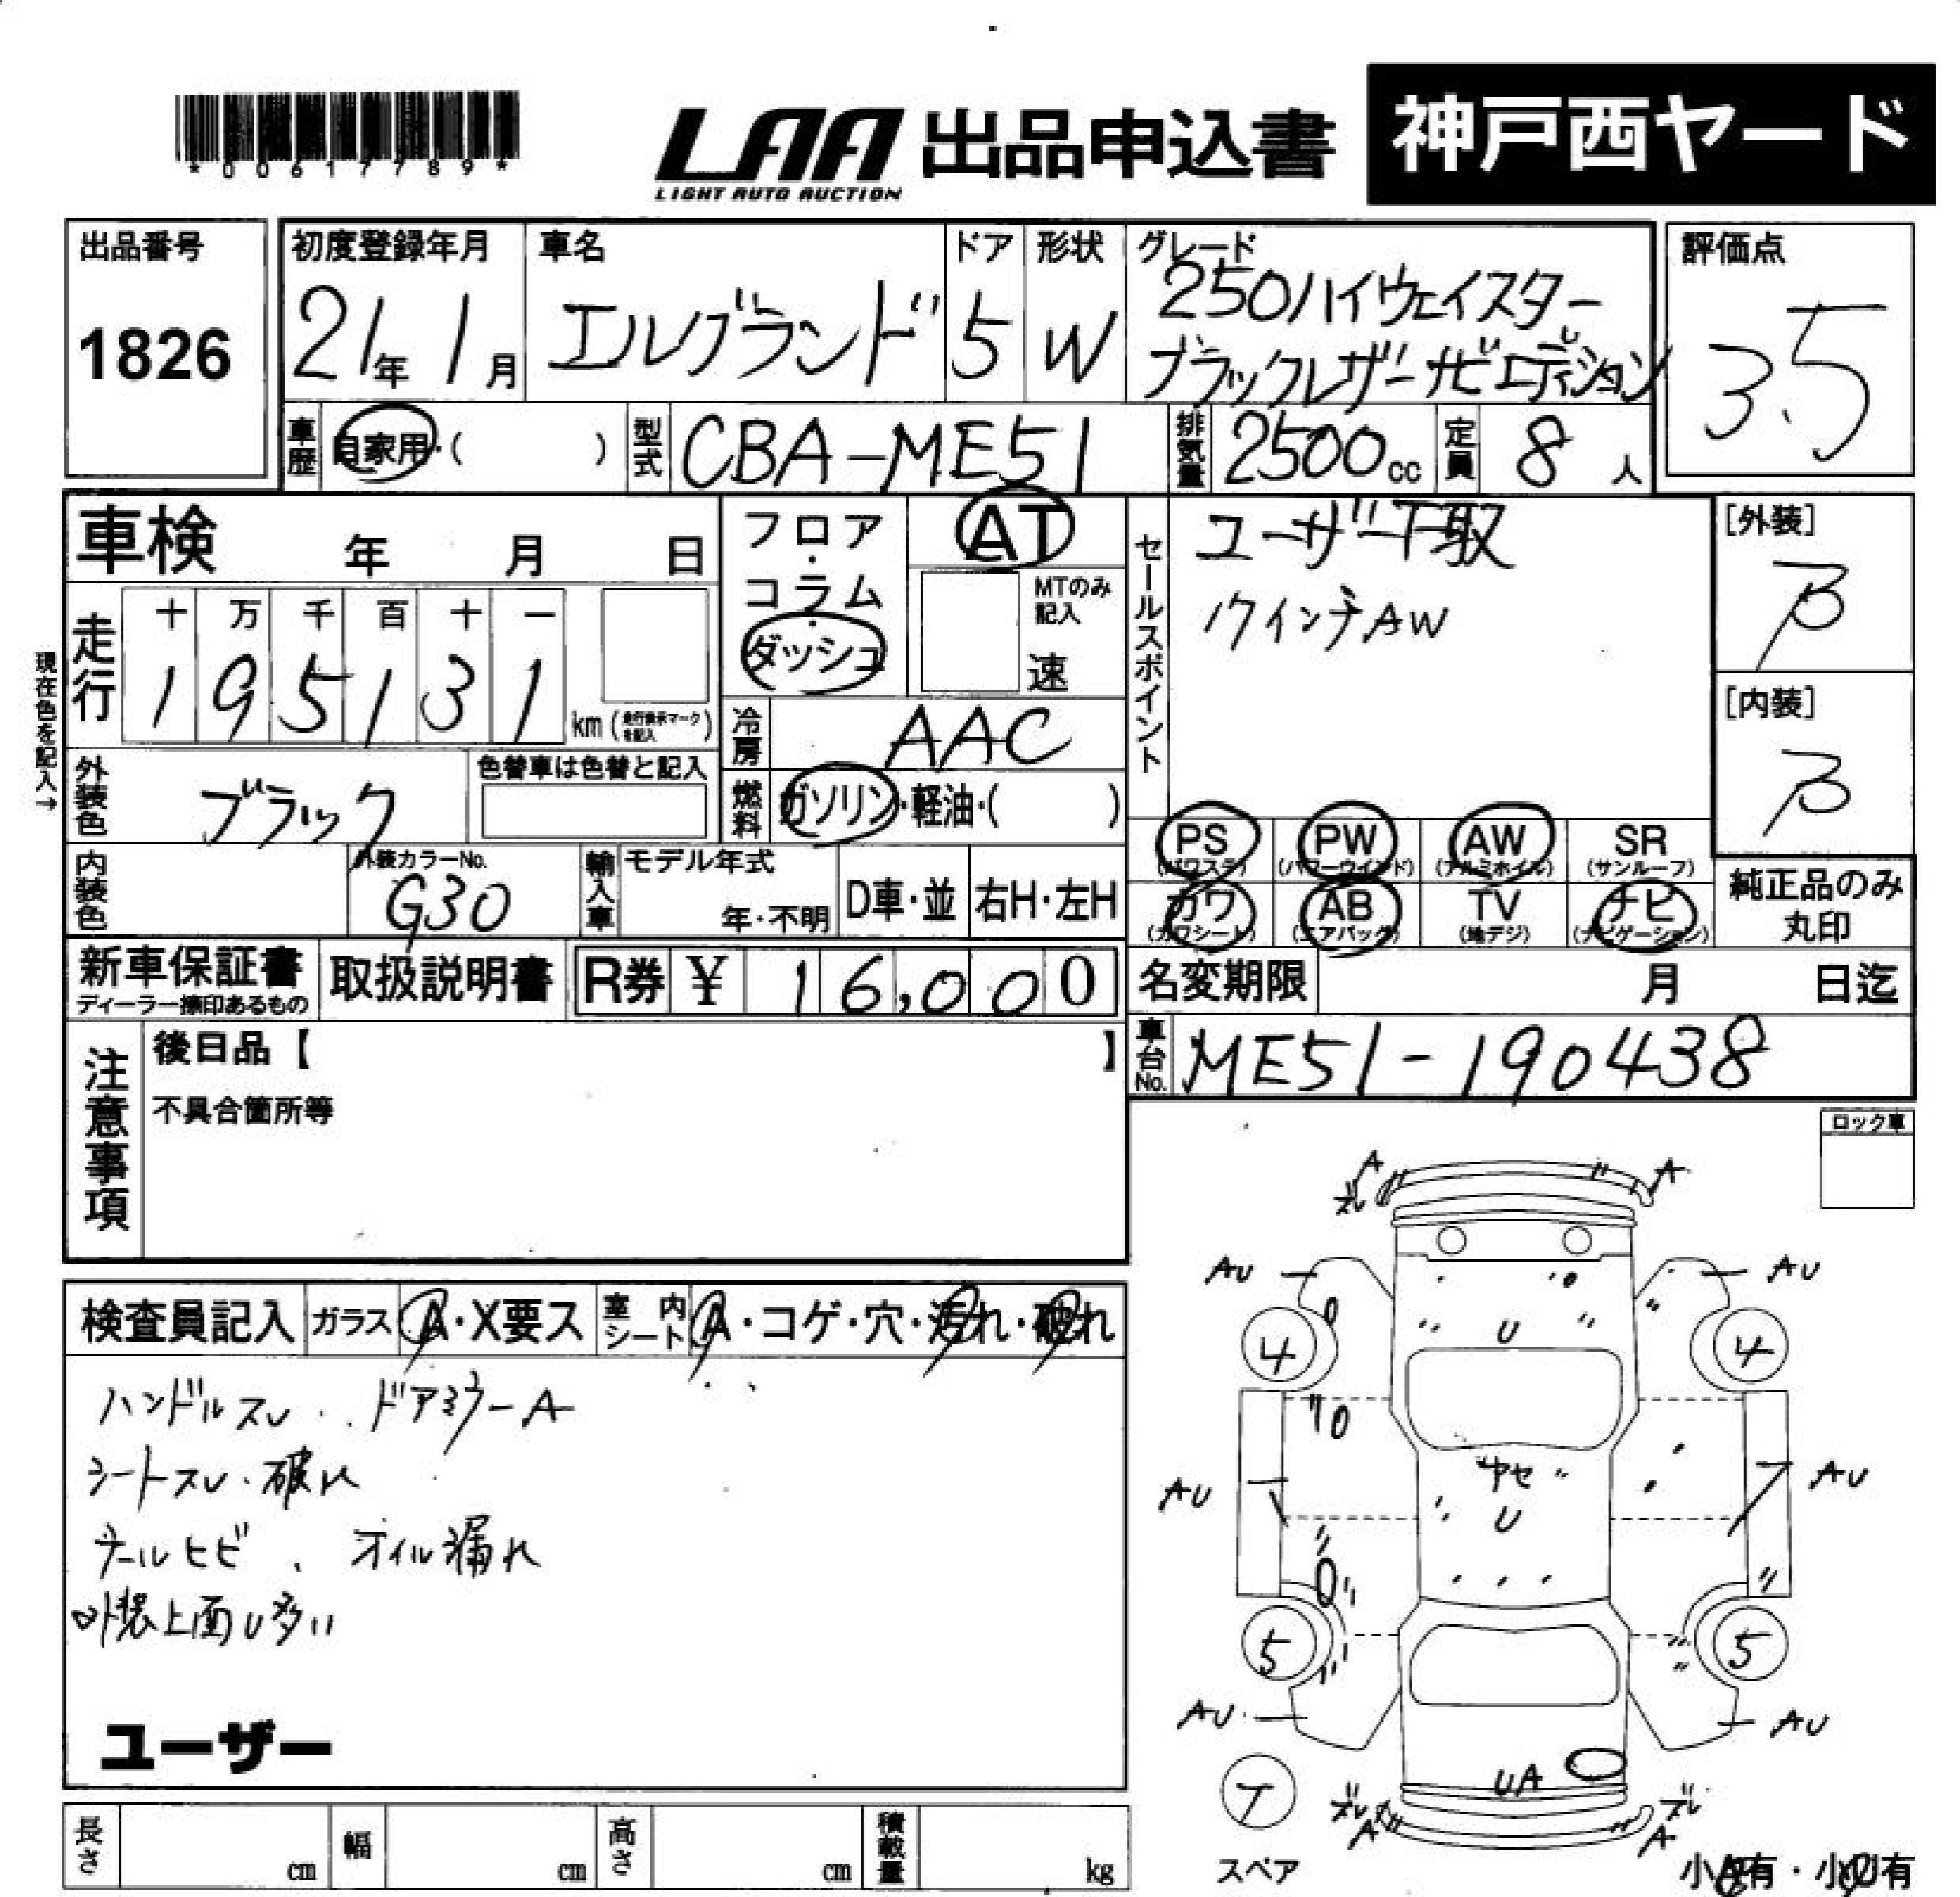 *00617789*
LAA 出品申込書 神戸西ヤード
LIGHT AUTO AUCTION
出品番号
1826
初度登録年月
21年 1月
車名
エルグランド
ドア
5
形状
W
グレード
250ハイウェイスター
ブラックレザーナビエディション
評価点
3.5
車歴 自家用・( )
型式 CBA-ME51
排気量 2500cc
定員 8人
車検 年 月 日
フロア・コラム・ダッシュ
AT
MTのみ記入
速
走行 十 万 千 百 十 一
195131
km (走行表示マークを記入)
現在色を記入→
外装色 ブラック
色替車は色替と記入
冷房 AAC
燃料 ガソリン・軽油・( )
内装色
外装カラーNo.
G30
輸入車 モデル年式
年・不明
D車・並
右H・左H
セールスポイント
ユーザー下取
17インチAW
[外装]
B
[内装]
B
PS (パワステ)
PW (パワーウインド)
AW (アルミホイル)
SR (サンルーフ)
カワ (カワシート)
AB (エアバッグ)
TV (地デジ)
ナビ (ナビゲーション)
純正品のみ
丸印
新車保証書
ディーラー捺印あるもの
取扱説明書
R券 ¥ 16,000
名変期限 月 日迄
車台No. ME51-190438
注意事項
後日品【 】
不具合箇所等
ロック車
検査員記入
ガラス A・X要ス
室内シート A・コゲ・穴・汚れ・破れ
ハンドルスレ . . ドアミラーA
シートスレ・破れ
シールヒビ . オイル漏れ
外装上面U多い
ユーザー
A A
ズレ
AU AU
4 U 4
AU ヤセ AU
U
5 5
AU AU
UA
T
ズレ ズレ
A A
スペア
小A有・小U有
長さ cm
幅 cm
高さ cm
積載量 kg